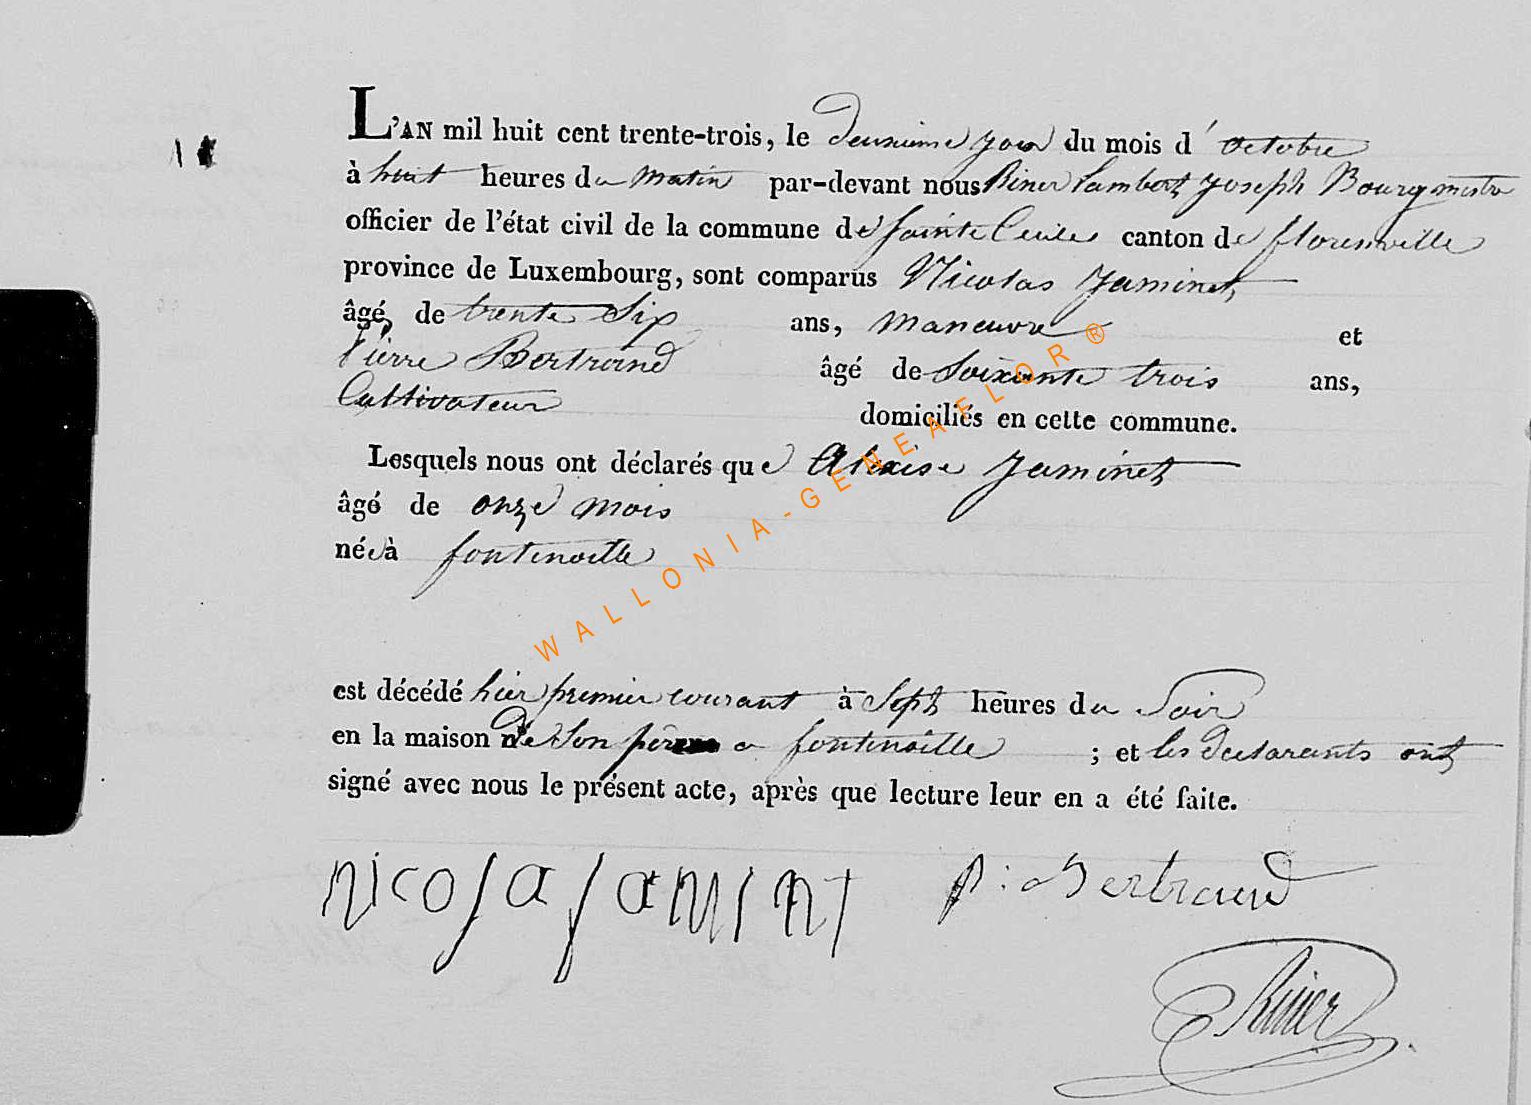 L'AN mil huit cent trente-trois, le deuxieme jour du mois d'octobre
à huit heures du matin par-devant nous Riner Lambert Joseph Bourgmestre
officier de l'état civil de la commune de Sainte Cecile canton de florenville
province de Luxembourg, sont comparus Nicolas Jaminet
âgé, de trente Six ans, maneuvre et
Pierre Bertrand âgé de Soixante trois ans,
Cultivateur domiciliés en cette commune.
Lesquels nous ont déclarés que Jaminet
âgé de onze mois
née à fontenoille
est décédé hier premier courant à Sept heures du Soir
en la maison de Son père a fontenoille ; et les declarants ont
signé avec nous le présent acte, après que lecture leur en a été faite.
nicola Jamint P: Bertrand
Riner
WALLONIA-GENEAFLOR®